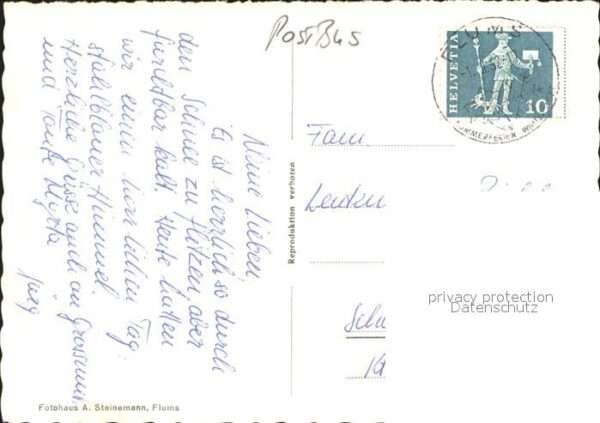 PostBus
FLUMS
HELVETIA
10
Meine Lieben
Es ist herrlich so durch
den Schnee zu flitzen aber
furchtbar kalt. Heute hatten
wir einen herrlichen Tag:
stahlblauer Himmel.
Herzliche Grüsse auch an Grossmutti
und Tante
Jürg
Fam.
Reproduktion verboten
privacy protection
Datenschutz
Fotohaus A. Steinemann, Flums